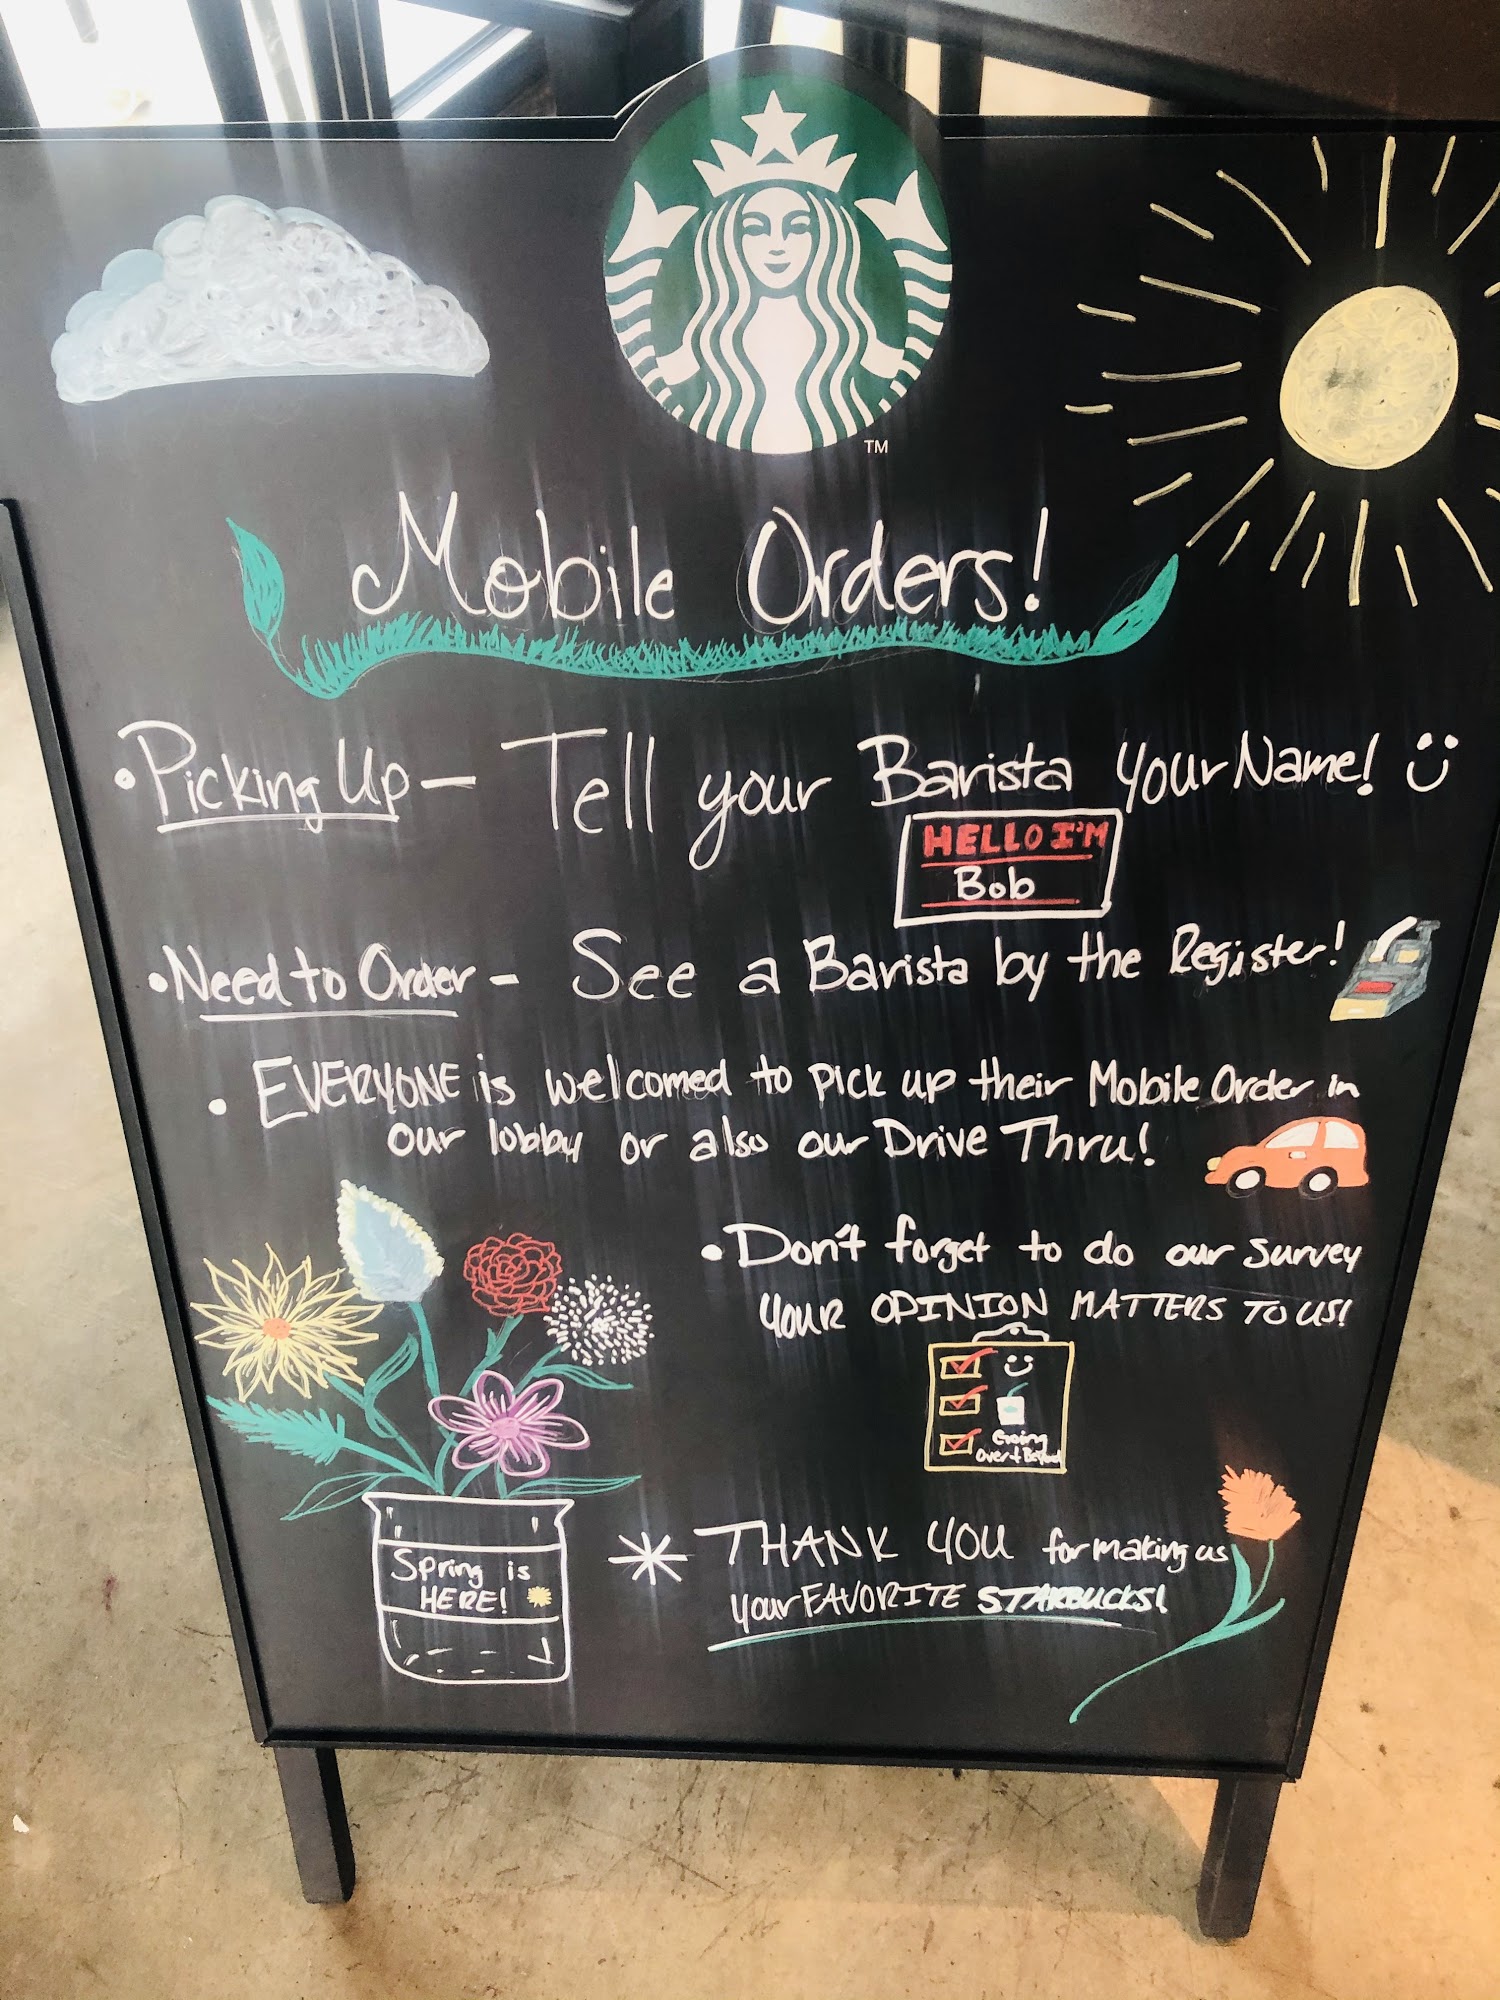 TM
Mobile Orders!
• Picking Up - Tell your Barista your Name!
HELLO I'M
Bob
• Need to Order - See a Barista by the Register!
• EVERYONE is welcomed to pick up their Mobile Order in
our lobby or also our Drive Thru!
• Don't forget to do our survey
YOUR OPINION MATTERS TO US!
Going
Over + Beyond
Spring is
HERE!
* THANK YOU for making us
your FAVORITE STARBUCKS!